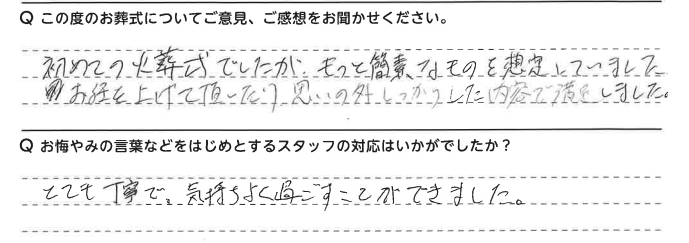 Q この度のお葬式についてご意見、ご感想をお聞かせください。
初めての火葬式でしたが、もっと簡素なものを想定していました
お経を上げて頂いたり思いの外しっかりした内容で満足しました。
Q お悔やみの言葉などをはじめとするスタッフの対応はいかがでしたか？
とても丁寧で、気持ちよく過ごすことができました。